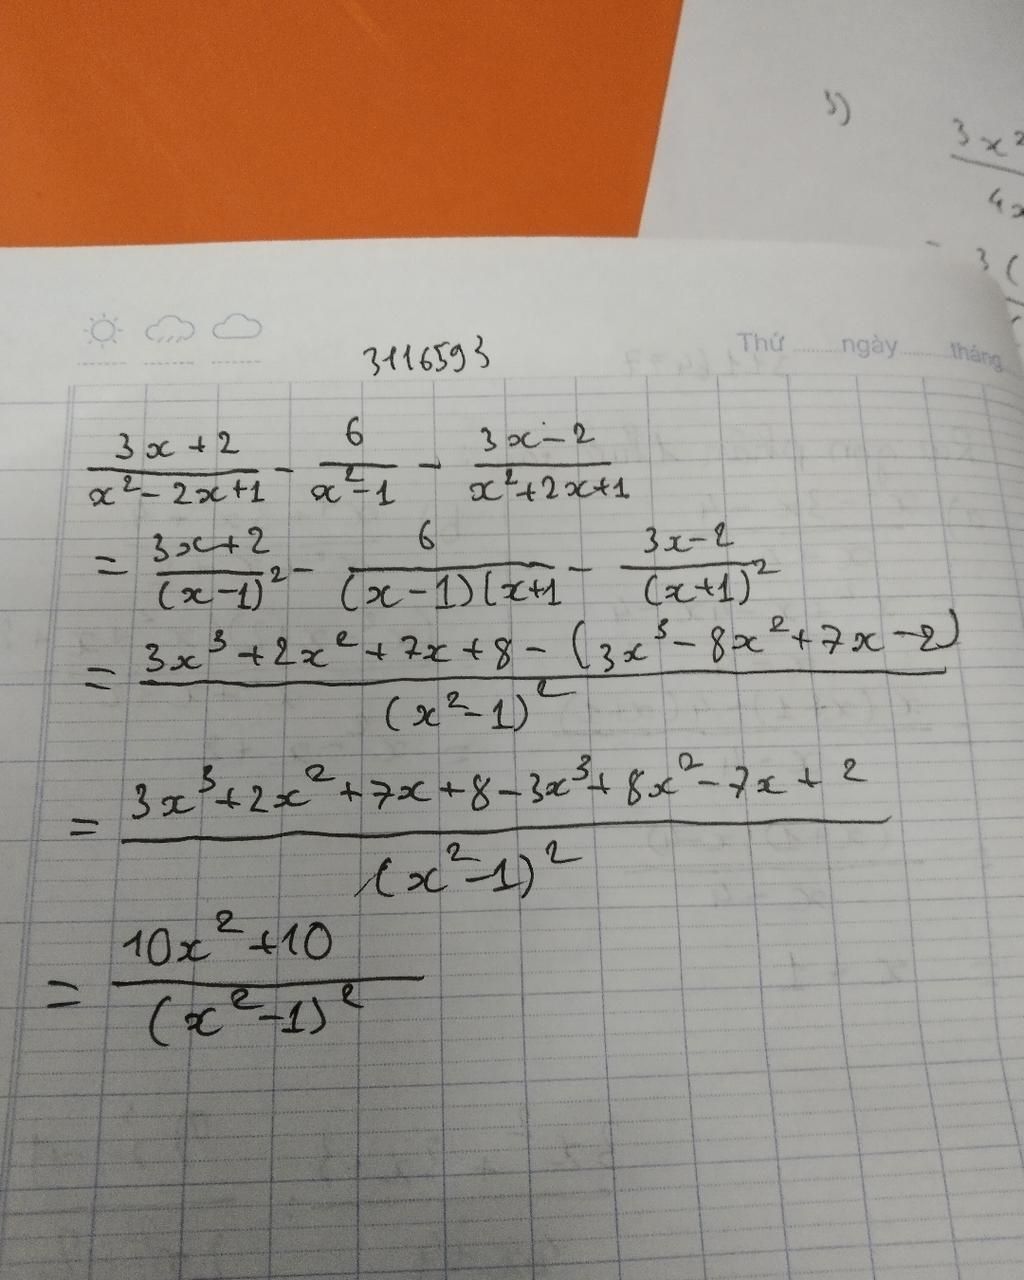 3)
3x²
4x
- 3(
3116593
Thứ ngày tháng
(3x + 2)/(x² - 2x + 1) - 6/(x² - 1) - (3x - 2)/(x² + 2x + 1)
= (3x + 2)/(x - 1)² - 6/((x - 1)(x + 1 - (3x - 2)/(x + 1)²
= (3x³ + 2x² + 7x + 8 - (3x³ - 8x² + 7x - 2))/(x² - 1)²
= (3x³ + 2x² + 7x + 8 - 3x³ + 8x² - 7x + 2)/(x² - 1)²
= (10x² + 10)/(x² - 1)²